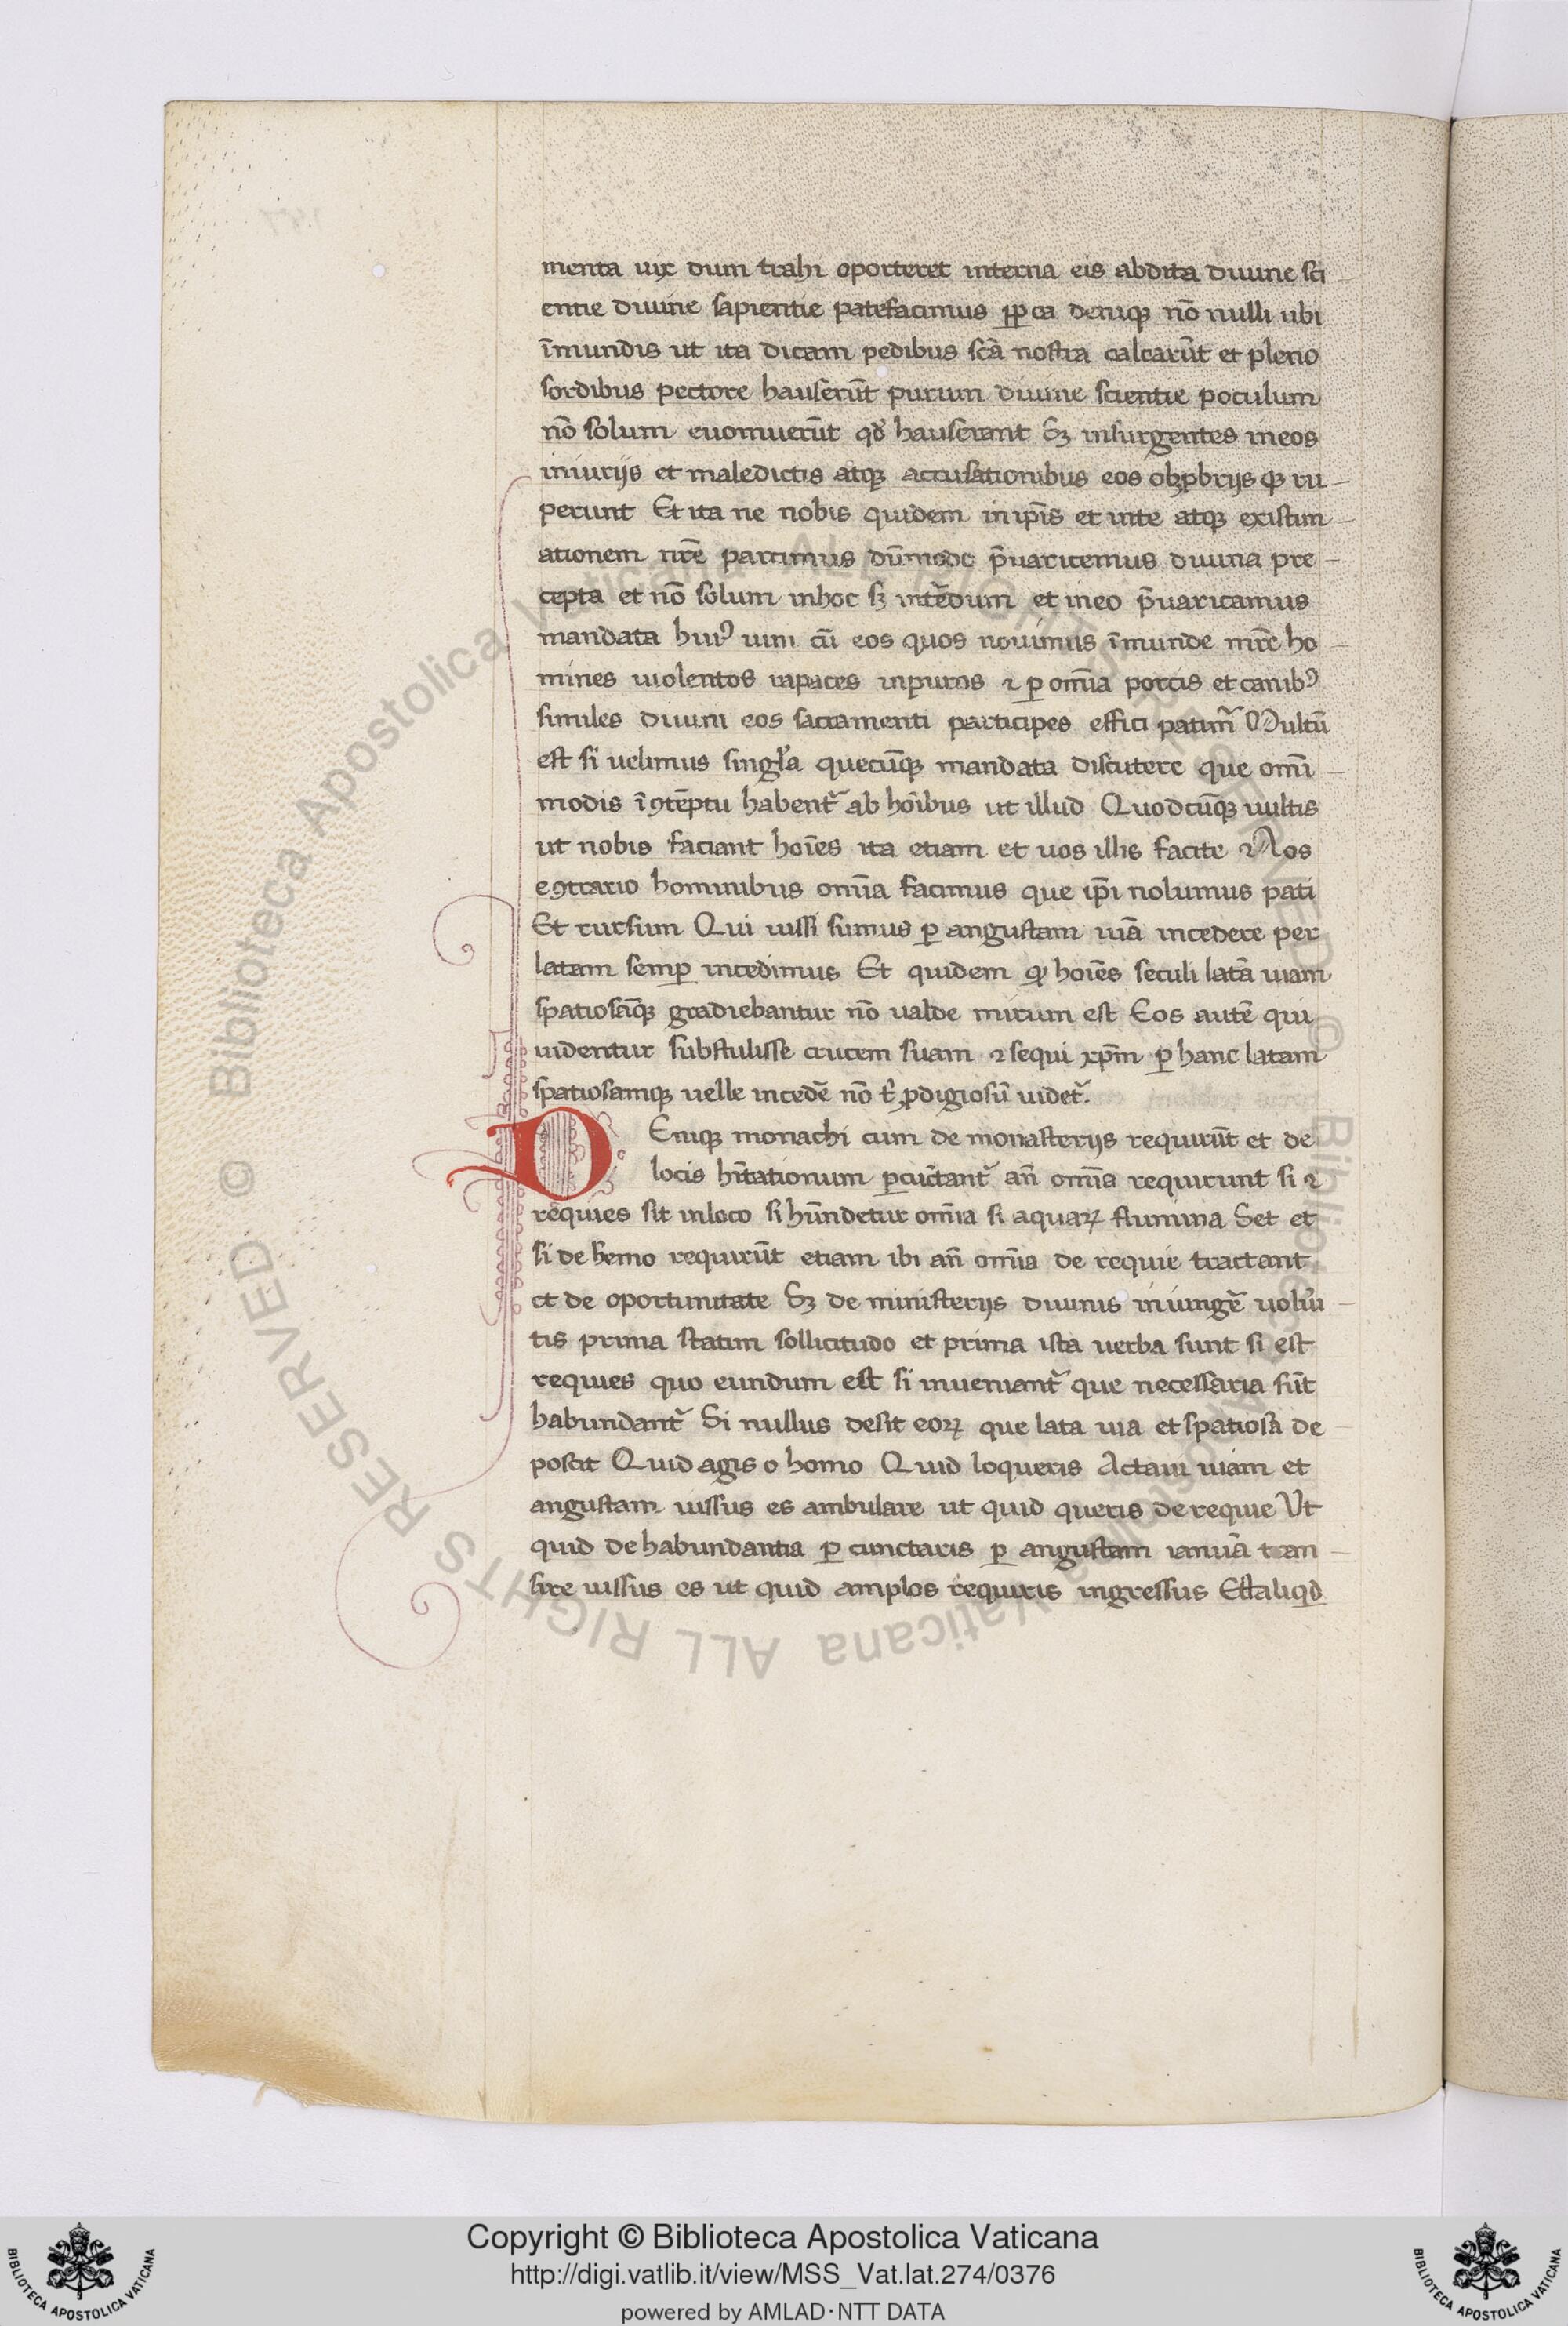 menta uix dum trahi oporteret interna eis abdita diuine sci
entie diuine sapientie patefacimus ꝓpt̃ea deniqꝫ nõ nulli ubi
ĩmundis ut ita dicam pedibus sc̃a nostra calcarũt et pleno
sordibus pectore hauserũt purum diuine scientie poculum
nõ solum euomuerũt qđ hauserant Sꝫ insurgentes in eos
iniurijs et maledictis atqꝫ accusationibus eos obꝓbrijsqꝫ ru
perunt Et ita ne nobis quidem in ip̃is et uite atqꝫ existim
ationem nr̃e parcimus dũmodo p̃uaricemus diuina pre
cepta et nõ solum in hoc sꝫ intẽdum et in eo p̃uaricamus
mandata huiꝰ uini cũ eos quos nouimus ĩmunde mr̃e ho
mines uiolentos rapaces inpuros ⁊ ꝑ om̃ia porcis et canibꝰ
similes diuini eos sacramenti participes effici patim̃ Multũ
est si uelimus singl̃a quecũqꝫ mandata discutere que om̃i
modis ĩ ꝯtẽptu habent̃ ab hoĩbus ut illud Quodcũqꝫ uultis
ut nobis faciant hoĩes ita etiam et uos illis facite Nos
e ꝯtrario hominibus om̃ia facimus que ip̃i nolumus pati
Et rursum Qui iussi sumus ꝑ angustam uiã incedere per
latam semꝑ incedimus Et quidem qꝫ hoĩes seculi latã uiam
spatiosãqꝫ gradiebantur nõ ualde mirum est Eos autẽ qui
uidentur substulisse crucem suam ⁊ sequi xp̃m ꝑ hanc latam
spatiosamqꝫ uelle incedẽ nõ ꝓdigiosũ uidet̃.
DEniqꝫ monachi cum de monasterijs requirũt et de
locis hĩtationum ꝑcũctant̃ añ om̃ia requirunt si ⁊
requies sit in loco si hũndetur om̃ia si aquaꝝ flumina Set et
si de heremo requirũt etiam ibi añ om̃ia de requie tractant
et de oportunitate Sꝫ de ministerijs diuinis iniungẽ
tis prima statim sollicitudo et prima ista uerba sunt si est
requies quo eundum est si inueniant̃ que necessaria sũt
habundant̃ Si nullus desit eoꝝ que lata uia et spatiosa de
poscit Quid agis o homo Quid loqueris Actam uiam et
angustam iussus es ambulare ut quid queris de requie Vt
quid de habundantia ꝑ cunctaris ꝑ angustam ianuã tran
sire iussus es ut quid amplos requiris ingressus Et aliqđ
Copyright © Biblioteca Apostolica Vaticana
http://digi.vatlib.it/view/MSS_Vat.lat.274/0376
powered by AMLAD·NTT DATA
BIBLIOTECA APOSTOLICA VATICANA
BIBLIOTECA APOSTOLICA VATICANA
© Biblioteca Apostolica Vaticana ALL RIGHTS RESERVED © Biblioteca Apostolica Vaticana ALL RIGHTS RESERVED